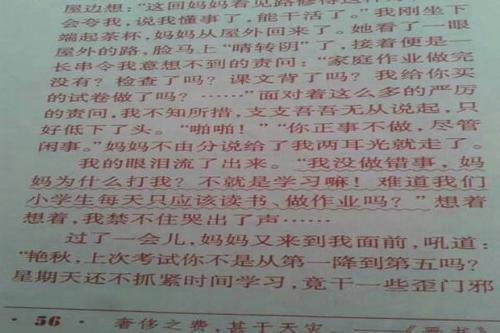 屋边想：“这回妈妈看见路修得这
会夸我，说我懂事了，能干活了。”我刚坐下
端起茶杯，妈妈从屋外回来了。她看了一眼
屋外的路，脸马上“晴转阴”了，接着便是一
长串令我意想不到的责问：“家庭作业做完
没有？检查了吗？课文背了吗？我给你买
的试卷做了吗？……”面对着这么多的严厉
的责问，我不知所措，支支吾吾无从说起，只
好低下了头。“啪啪！”“你正事不做，尽管
闲事。”妈妈不由分说给了我两耳光就走了。
我的眼泪流了出来。“我没做错事，妈
妈为什么打我？不就是学习嘛！难道我们
小学生每天只应该读书、做作业吗？”想着
想着，我禁不住哭出了声……
过了一会儿，妈妈又来到我面前，吼道：
“艳秋，上次考试你不是从第一降到第五吗？
星期天还不抓紧时间学习，竟干一些歪门邪
· 56 · 奢侈之费，甚于天灾。——《晋书》